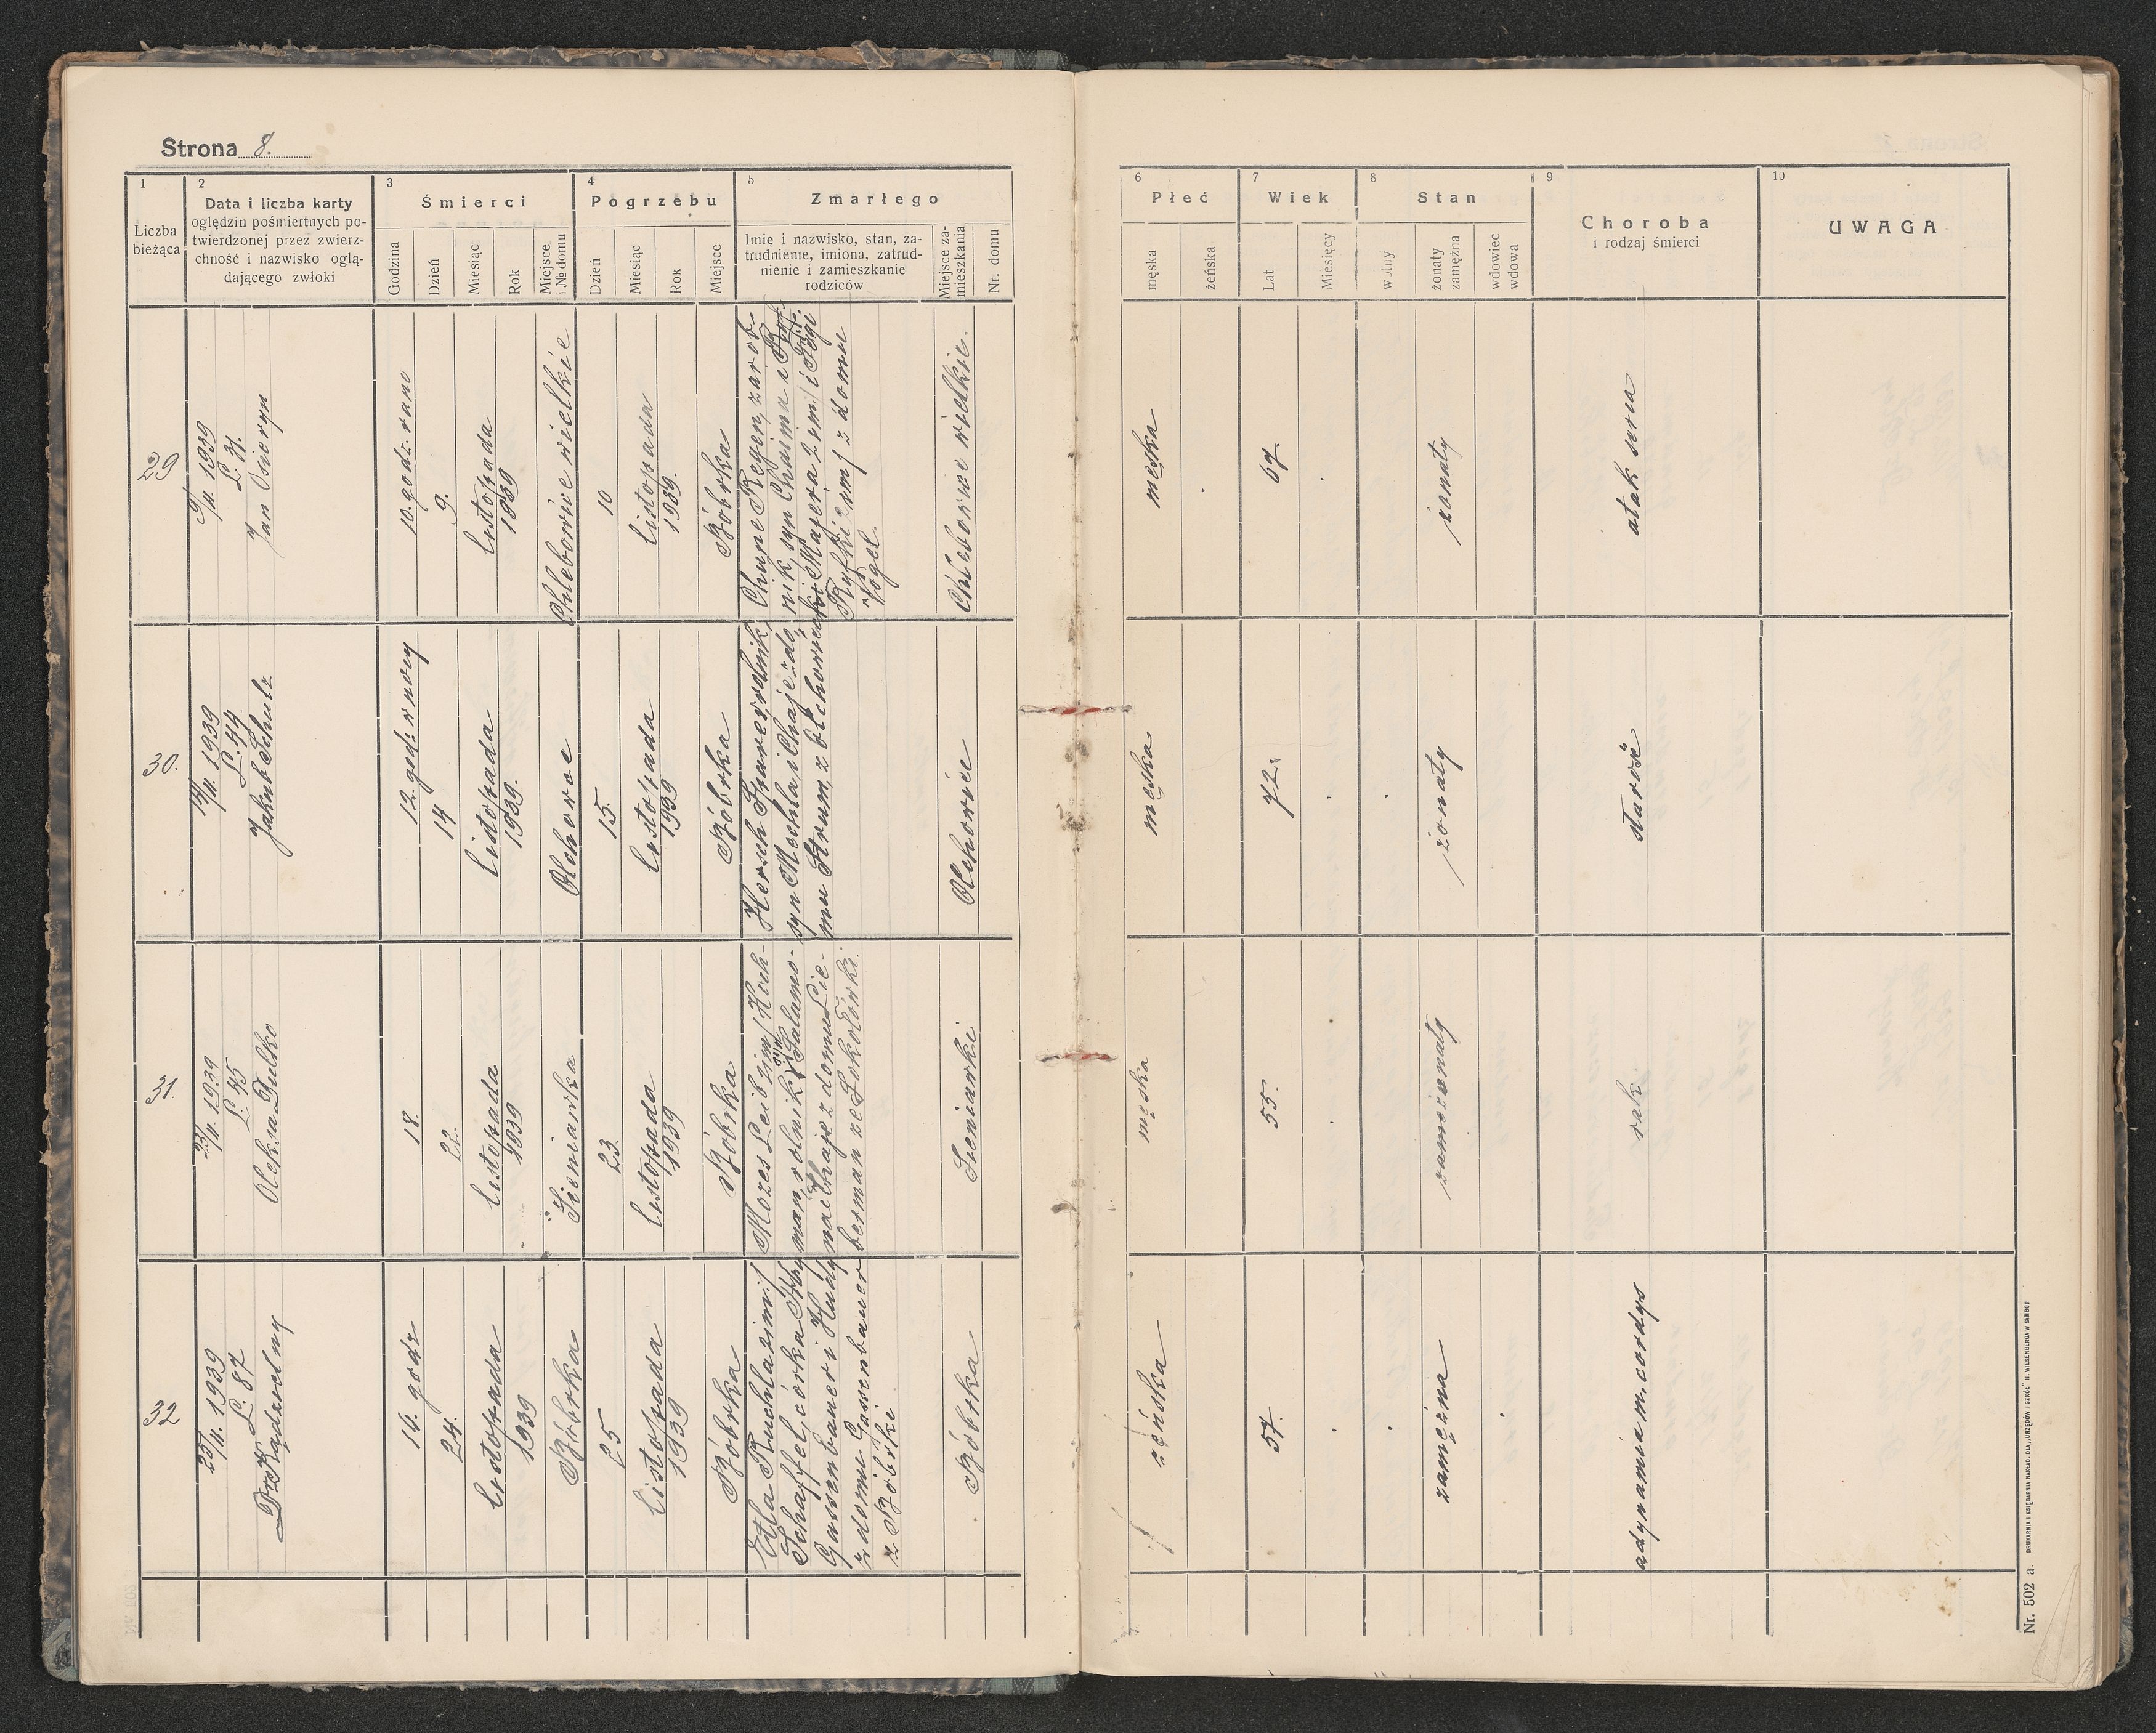 Strona 8.
1
Liczba
bieżąca
2
Data i liczba karty
oględzin pośmiertnych po-
twierdzonej przez zwierz-
chność i nazwisko oglą-
dającego zwłoki
3
Śmierci
Godzina
Dzień
Miesiąc
Rok
Miejsce
i № domu
4
Pogrzebu
Dzień
Miesiąc
Rok
Miejsce
5
Zmarłego
Imię i nazwisko, stan, za-
trudnienie, imiona, zatrud-
nienie i zamieszkanie
rodziców
Miejsce za-
mieszkania
Nr. domu
6
Płeć
męska
żeńska
7
Wiek
Lat
Miesięcy
8
Stan
wolny
żonaty
zamężna
wdowiec
wdowa
9
Choroba
i rodzaj śmierci
10
UWAGA
29
9/11. 1939
L: 31.
Jan
10. godz: rano
9.
listopada
1939
Chlebowice wielkie
10
listopada
1939.
Bóbrka
Chune Regen, zarob-
nik, syn Chaima i
Majera 2 im/ i Feigi
Ryfki 2 im/ z domu
Vogel.
Chlebowice wielkie.
męska
67.
żonaty
atak serca
30.
14/11. 1939
L: 44
Jakub Schulz
12. godz: w nocy
14
listopada
1939.
Olchowce
15.
listopada
1939
Bóbrka
Hersch rolnik,
syn Mechla i Chaje z do-
mu Strum, z
Olchowiec
męska
72.
żonaty
starość
31.
23/11. 1939
L: 45
Oleksa Dulko
18.
22.
listopada
1939
Sieniawka
23.
listopada
1939
Bóbrka
Mozes Leib 2 im/ Hoch-
man, rolnik, syn Salamo-
na i Chaje z domu Lie-
berman ze Sokołówki.
Sieniawka
męska
55.
rak
32
25/11. 1939
L: 87
Dr Kądzielny
14. godz
24.
listopada
1939
Bóbrka
25
listopada
1939
Bóbrka
Etla Ruchla 2 im:/
Schaffel, córka
Gassenbauer i Hudy
z domu Gassenbauer
z Bóbrki
Bóbrka
żeńska
57.
zamężna
adynamia m. cordys
Nr. 502 a.
DRUKARNIA I KSIĘGARNIA NAKŁAD. DLA „URZĘDÓW I SZKÓŁ" H. WIESENBERGA W SAMBOR